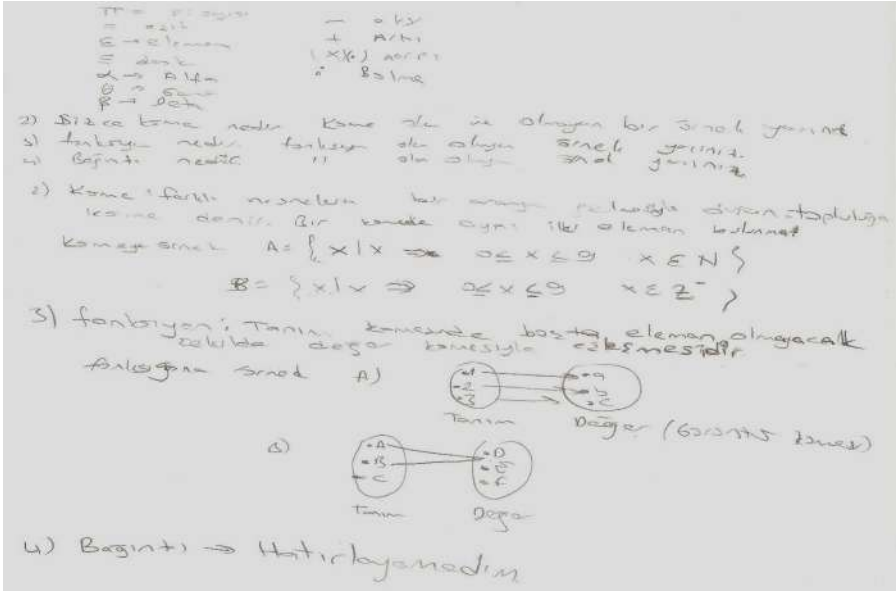 π = sayısı
= eşit
∈ → eleman
≡ denk
α → Alfa
β → beta
- eksi
+ Artı
(x)(.) çarpı
÷ Bölme
2) Sizce küme nedir küme olan ve olmayan bir örnek yazınız
3) fonksiyon nedir. fonksiyon olan olmayan örnek yazınız.
4) Bağıntı nedir " olan olmayan örnek yazınız
2) Küme: farklı nesnelerin bir araya gelmesiyle oluşan topluluğa
küme denir. Bir kümede aynı iki eleman bulunmaz
kümeye örnek A = { x | x ⇒ 0 ≤ x ≤ 9 x ∈ N }
B = { x | x ⇒ 0 ≤ x ≤ 9 x ∈ Z⁻ }
3) fonksiyon: Tanım kümesinde boşta eleman olmayacak
şekilde değer kümesiyle eşleşmesidir
fonksiyona örnek A) 1 2 3 a b c
Tanım Değer (Görüntü kümesi)
B) A B C D E F
Tanım Değer
4) Bağıntı → Hatırlayamadım